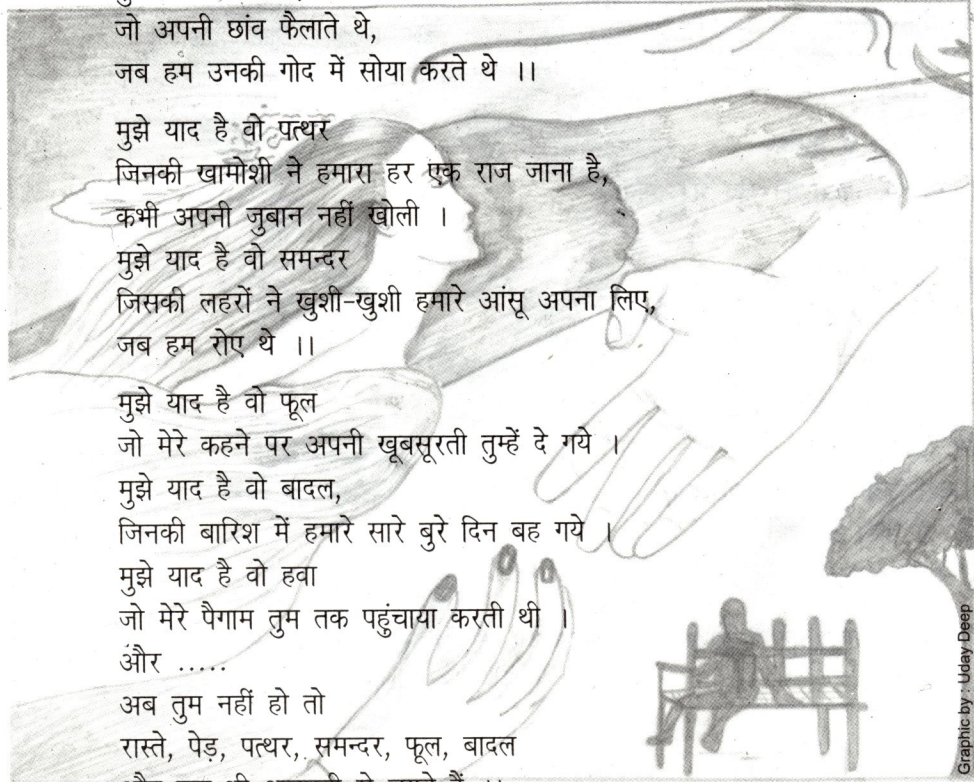 जो अपनी छांव फैलाते थे,
जब हम उनकी गोद में सोया करते थे ।।
मुझे याद है वो पत्थर
जिनकी खामोशी ने हमारा हर एक राज जाना है,
कभी अपनी जुबान नहीं खोली ।
मुझे याद है वो समन्दर
जिसकी लहरों ने खुशी-खुशी हमारे आंसू अपना लिए,
जब हम रोए थे ।।
मुझे याद है वो फूल
जो मेरे कहने पर अपनी खूबसूरती तुम्हें दे गये ।
मुझे याद है वो बादल,
जिनकी बारिश में हमारे सारे बुरे दिन बह गये ।
मुझे याद है वो हवा
जो मेरे पैगाम तुम तक पहुंचाया करती थी ।
और .....
अब तुम नहीं हो तो
रास्ते, पेड़, पत्थर, समन्दर, फूल, बादल
Graphic by : Uday Deep